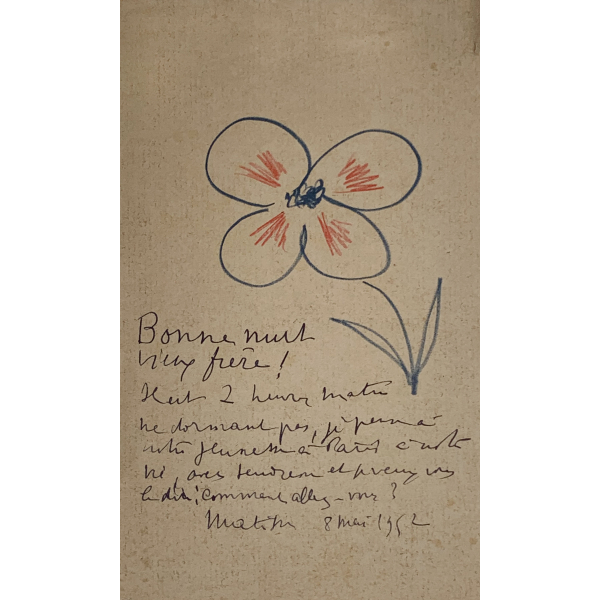 Bonne nuit
vieux frère!
Il est 2 heures matin
ne dormant pas, je pense à
notre jeunesse à Paris à notre
vie, avec tendresse et je veux vous
le dire; comment allez-vous?
Matisse 8 mai 1952